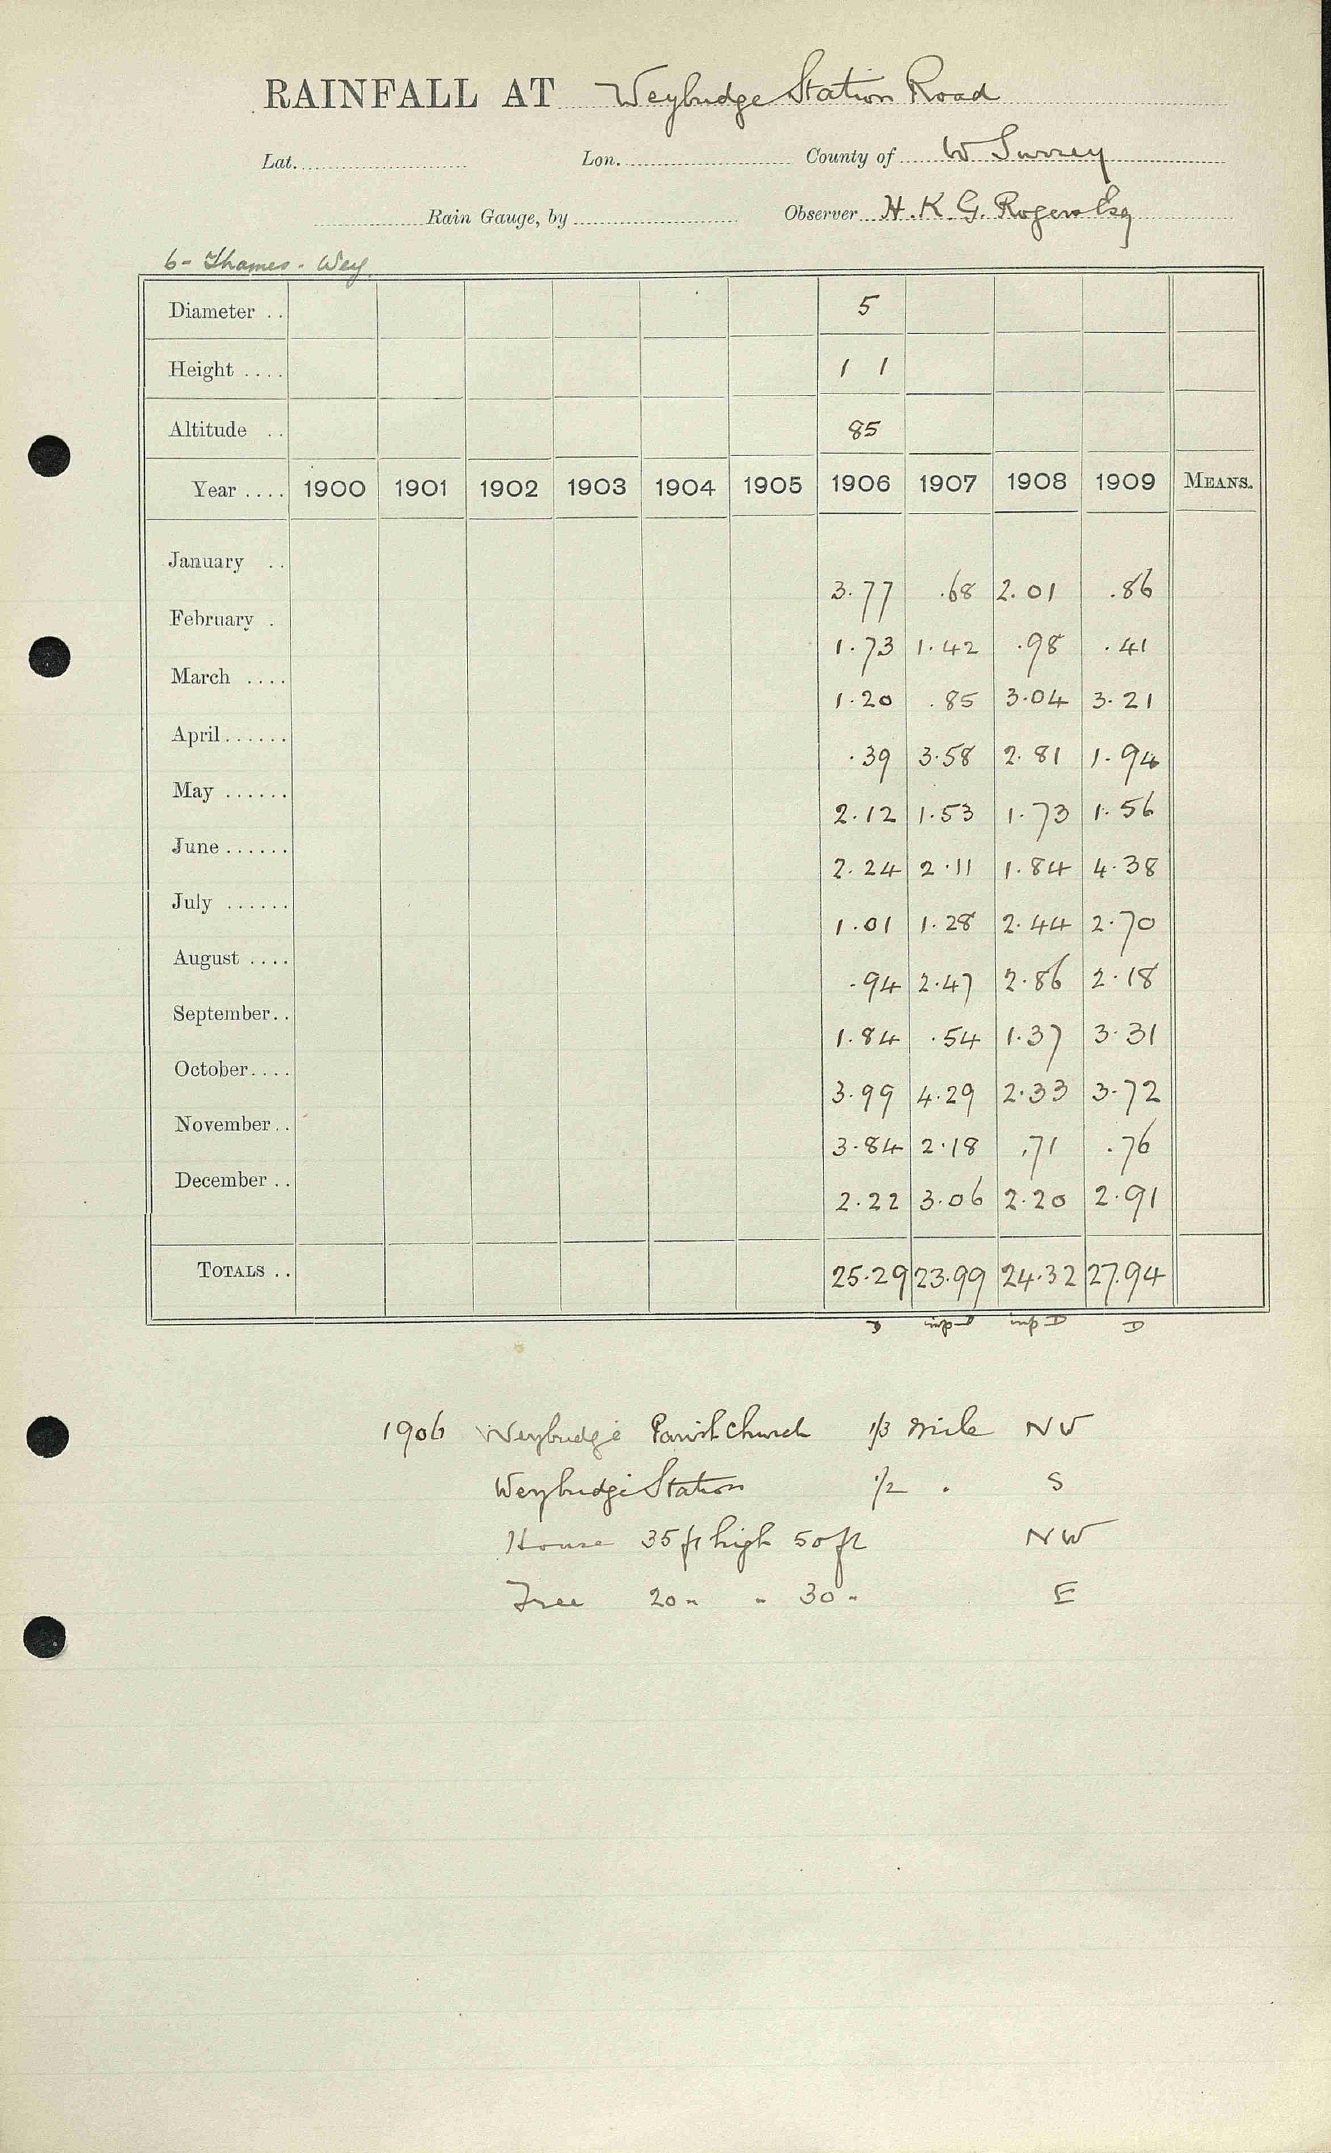 RAINFALL AT Weybridge Station Road
Lat. Lon. County of W Surrey
Rain Gauge, by Observer H. K. G. Rogers Esq
6 - Thames - Wey
Diameter .. 5
Height .... 1 1
Altitude .. 85
Year .... 1900 1901 1902 1903 1904 1905 1906 1907 1908 1909 MEANS.
January .. 3.77 .68 2.01 .86
February . 1.73 1.42 .98 .41
March .... 1.20 .85 3.04 3.21
April...... .39 3.58 2.81 1.94
May ...... 2.12 1.53 1.73 1.56
June ...... 2.24 2.11 1.84 4.38
July ...... 1.01 1.28 2.44 2.70
August .... .94 2.47 2.86 2.18
September.. 1.84 .54 1.37 3.31
October.... 3.99 4.29 2.33 3.72
November.. 3.84 2.18 .71 .76
December .. 2.22 3.06 2.20 2.91
TOTALS .. 25.29 23.99 24.32 27.94
1906 Weybridge Parish Church 1/3 mile NW
Weybridge Station 1/2 " S
House 35 ft high 50 ft NW
Tree 20 " " 30 " E